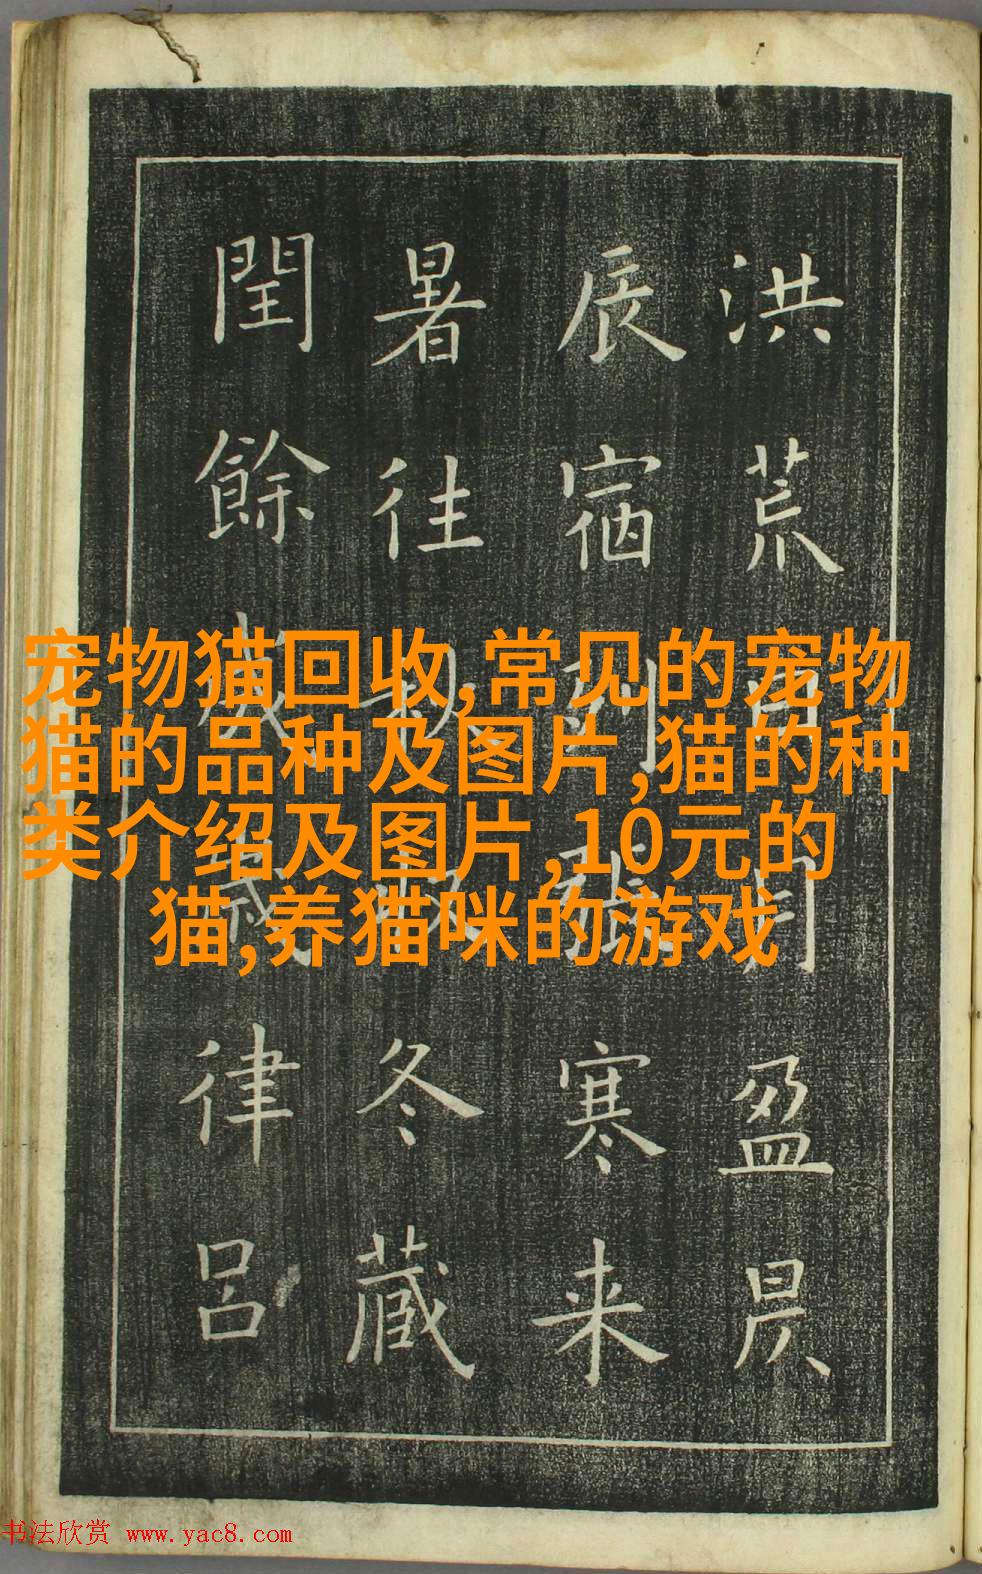 洪荒日月盈昃
辰宿列張寒来
暑往冬藏
閏餘成歲律呂
宠物猫回收,常见的宠物
猫的品种及图片,猫的种
类介绍及图片,10元的
猫,养猫咪的游戏
书法欣赏 www.yac8.com